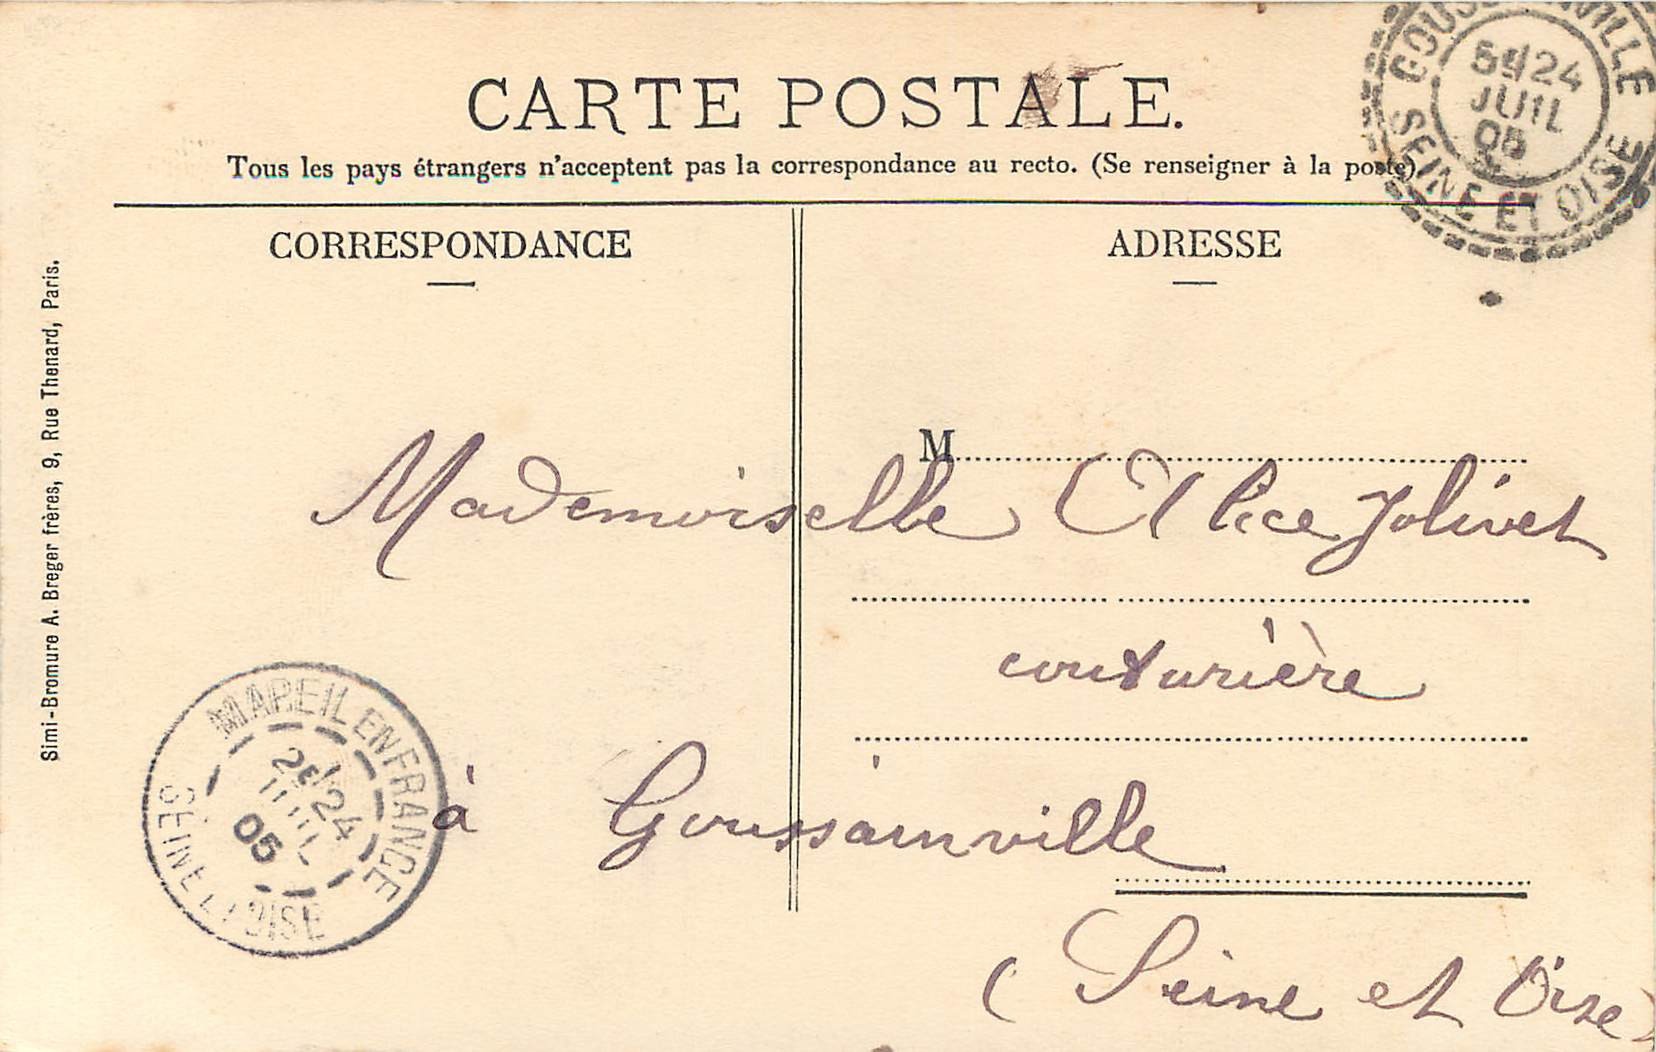 CARTE POSTALE.
Tous les pays étrangers n'acceptent pas la correspondance au recto. (Se renseigner à la poste)
CORRESPONDANCE
ADRESSE
M
Mademoiselle Alice Jolivet
couturière
à Goussainville
(Seine et Oise)
Simi-Bromure A. Breger frères, 9, Rue Thenard, Paris.
GOUSSAINVILLE
24
JUIL
05
SEINE ET OISE
MAREIL EN FRANCE
2E 24
JUIL
05
SEINE ET OISE